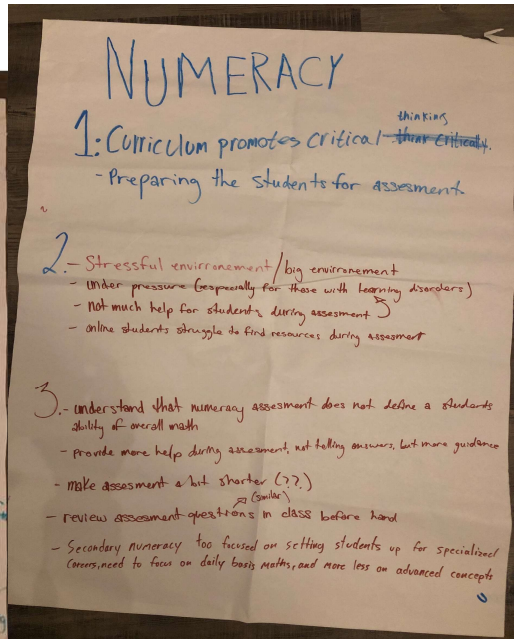 NUMERACY
thinking
1: Curriculum promotes critical think critically.
- Preparing the students for assesment
2. - Stressful envirronement / big envirronement
- under pressure (especially for those with learning disorders)
- not much help for students during assesment
- online students struggle to find resources during assesment
3. - understand that numeracy assesment does not define a students
ability of overall math
- provide more help during assesment, not telling answers, but more guidance
- make assesment a bit shorter (??)
(similar)
- review assesment questions in class before hand
- Secondary numeracy too focused on setting students up for specialized
careers, need to focus on daily basis maths, and more less on advanced concepts